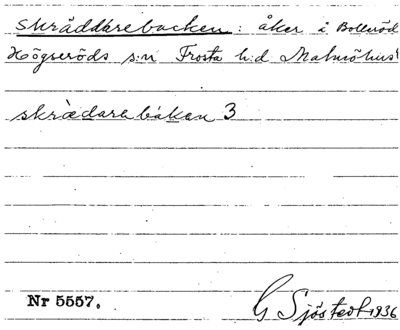 Skräddarebacken: åker i Bolleröd
Högseröds s:n Frosta h:d Malmöhus
skrädarebakan 3
Nr 5557.
G Sjöstedt 1936